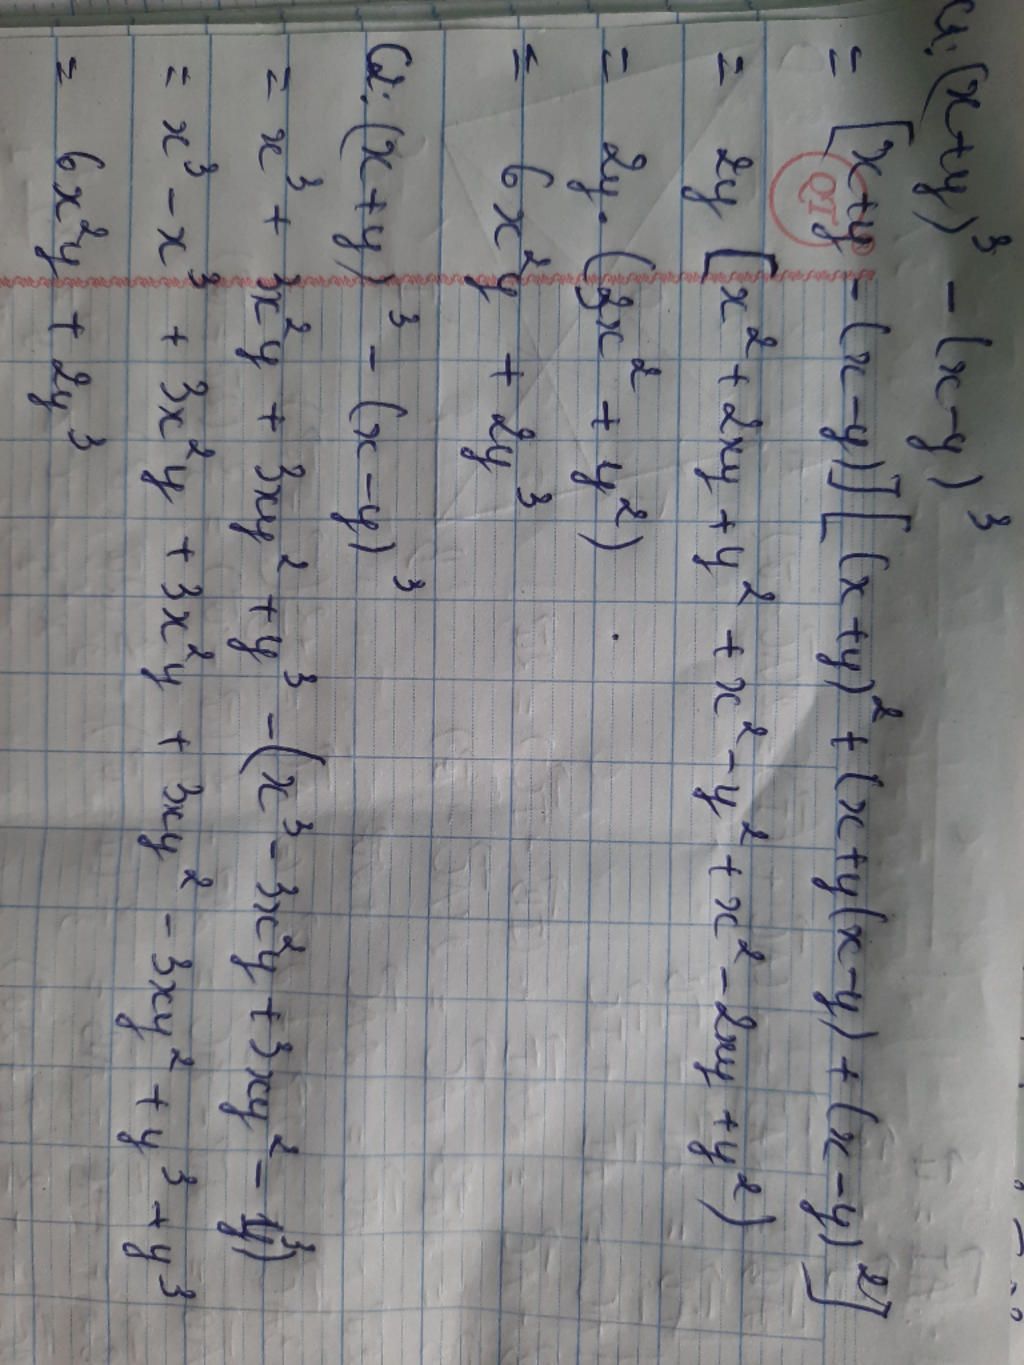 C1: (x+y)³ - (x-y)³
= [x+y - (x-y)][(x+y)² + (x+y(x-y) + (x-y)²]
QT
= 2y [x² + 2xy + y² + x² - y² + x² - 2xy + y²)
= 2y. (3x² + y²)
= 6x²y + 2y³
C2: (x+y)³ - (x-y)³
= x³ + 3x²y + 3xy² + y³ - (x³ - 3x²y + 3xy² - y³)
= x³ - x³ + 3x²y + 3x²y + 3xy² - 3xy² + y³ + y³
= 6x²y + 2y³